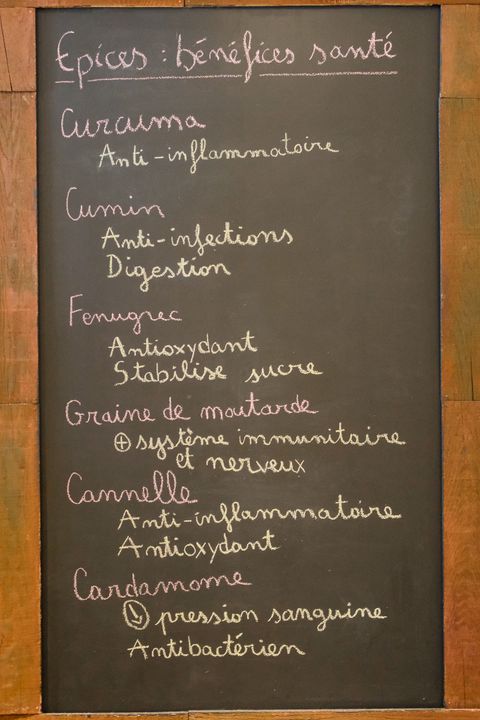 Epices : bénéfices santé
Curcuma
Anti-inflammatoire
Cumin
Anti-infections
Digestion
Fenugrec
Antioxydant
Stabilise sucre
Graine de moutarde
⊕ système immunitaire
et nerveux
Cannelle
Anti-inflammatoire
Antioxydant
Cardamome
↘ pression sanguine
Antibactérien